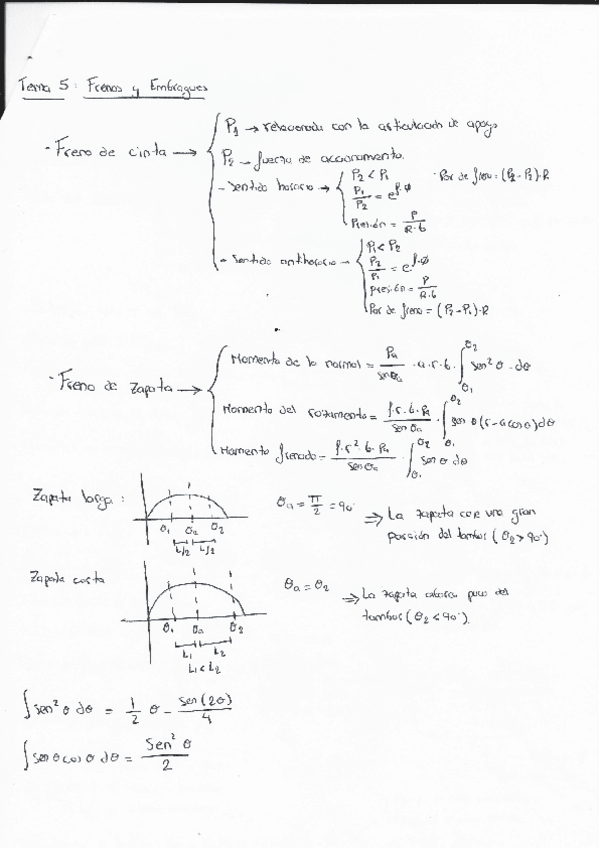 Tema 5: Frenos y Embragues
- Freno de cinta → P1 → relacionada con la articulación de apoyo
P2 → fuerza de accionamiento.
- Sentido horario → P2 < P1
P1/P2 = e^(f·Ø)
Presión = P/(R·b)
· Par de freno = (P2 - P1)·R
- Sentido antihorario → P1 < P2
P2/P1 = e^(f·Ø)
presión = P/(R·b)
Par de freno = (P2 - P1)·R
- Freno de zapata → Momento de la normal = Pa/senθa · a·r·b · ∫θ1^θ2 sen² θ · dθ
Momento del rozamiento = f·r·b·Pa/sen θa · ∫θ1^θ2 sen θ (r - a cos θ) dθ
Momento frenado = f·r²·b·Pa/sen θa · ∫θ1^θ2 sen θ dθ
Zapata larga:
θ1 θa θ2
L/2 L/2
θa = π/2 = 90° ⇒ La zapata con una gran
porción del tambor (θ2 > 90°)
Zapata corta
θ1 θa θ2
L1 L2
L1 < L2
θa = θ2 ⇒ La zapata poco del
tambor (θ2 < 90°).
∫sen² θ dθ = 1/2 θ - sen(2θ)/4
∫sen θ cos θ dθ = Sen² θ/2